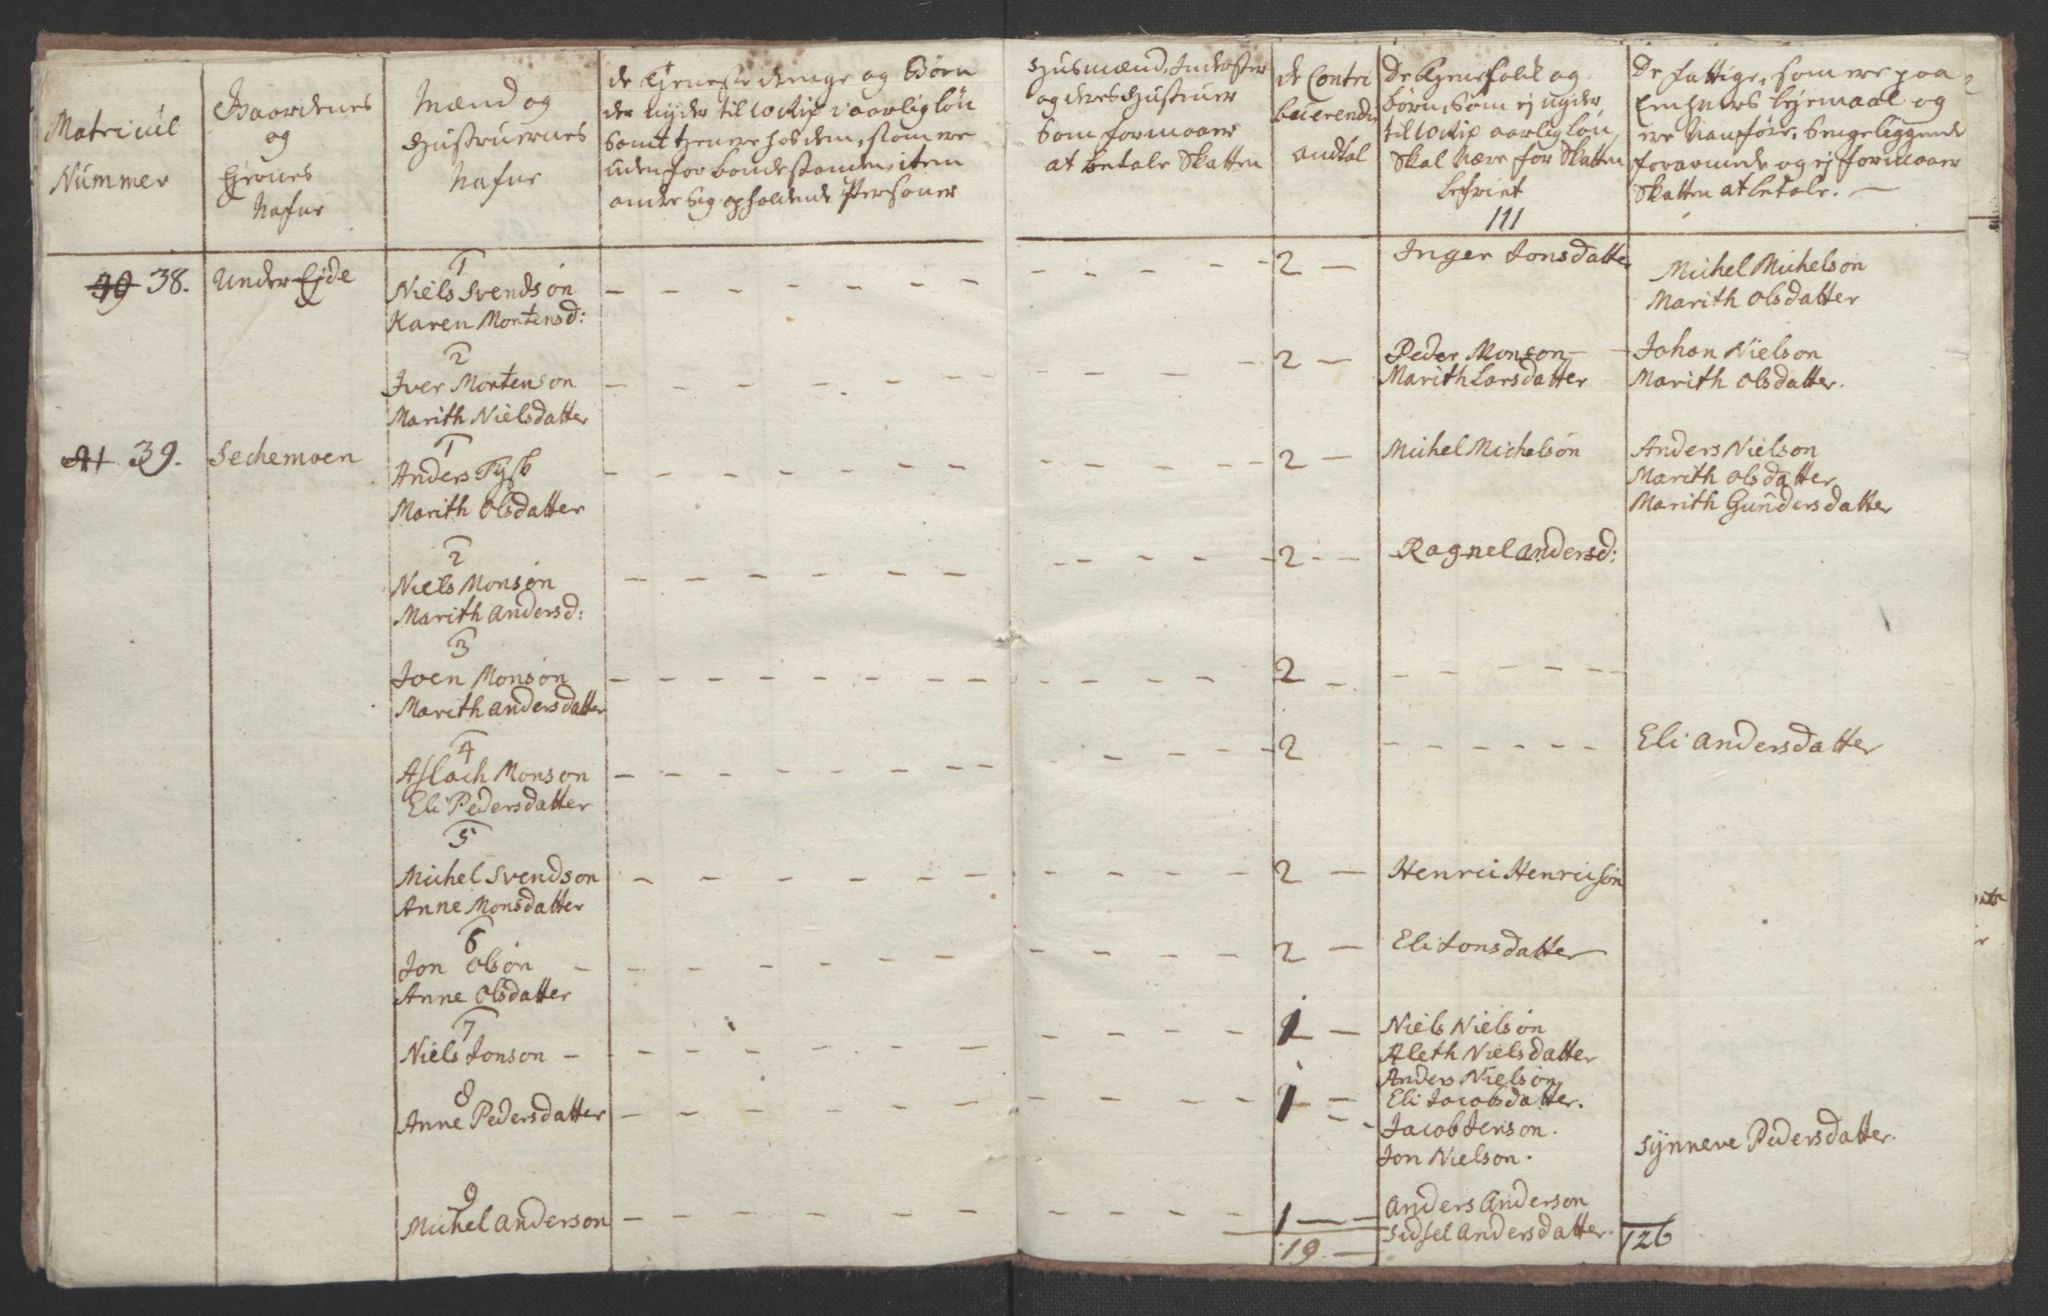 Matricul
Nummer
Gaardenes
og
Eiernes
Nafne
Mænd og
Hustruernes
Nafne
de Tieneste drenge og Børn
der nyder til 10 Rixd aarlig løn
Samt tienere hos dem, som ere
uden for bondestanden, item
andre sig opholdende Personer
Husmænd, Inderster
og deres Hustruer
Som formaaer
at betale Skatten
de Contri
buerendis
andtal
De Tienefolk og
børn, som ej nyder
til 10 Rix aarlig løn
Skal være for Skatten
befriet
111
De fattige, som ere paa
Lemhuus og
ere Vanføre, Sengeliggende
forarmede og ej formaaer
Skatten at betale. —
39 38. Under Eide
1
Niels Svendsøn
Karen Mortensd:
2 —
Inger Jonsdatter
Michel Michelsøn
Marith Olsdatter
2
Iver Mortenson
Marith Nielsdatter
2 —
Peder Monson —
Marith Larsdatter
Johan Nielson
Marith Olsdatter.
41 39. Sechemoen
1
Anders Tysk
Marith Olsdatter
2 —
Michel Michelsøn
Anders Nielson
Marith Olsdatter
Marith Gundersdatter
2
Niels Monsøn
Marith Andersd:
2 —
Ragnel Andersd:
3
Joen Monsøn
Marith Andersdatter
2 —
4
Aslach Monson
Eli Pedersdatter
2
Eli Andersdatter
5
Michel Svendson
Anne Monsdatter
2 —
Henric Henricsøn
6
Jon Olsøn
Anne Olsdatter
2 —
Eli Jonsdatter
7
Niels Jonson —
1 —
Niels Nielsøn
Aleth Nielsdatter
Anders Nielsøn
8
Anne Pedersdatter
1 —
Eli Jacobsdatter.
Jacob Jenson.
Jon Nielson.
Synneve Pedersdatter.
9
Michel Anderson
1 —
Anders Anderson
Sidsel Andersdatter.
19. —
126